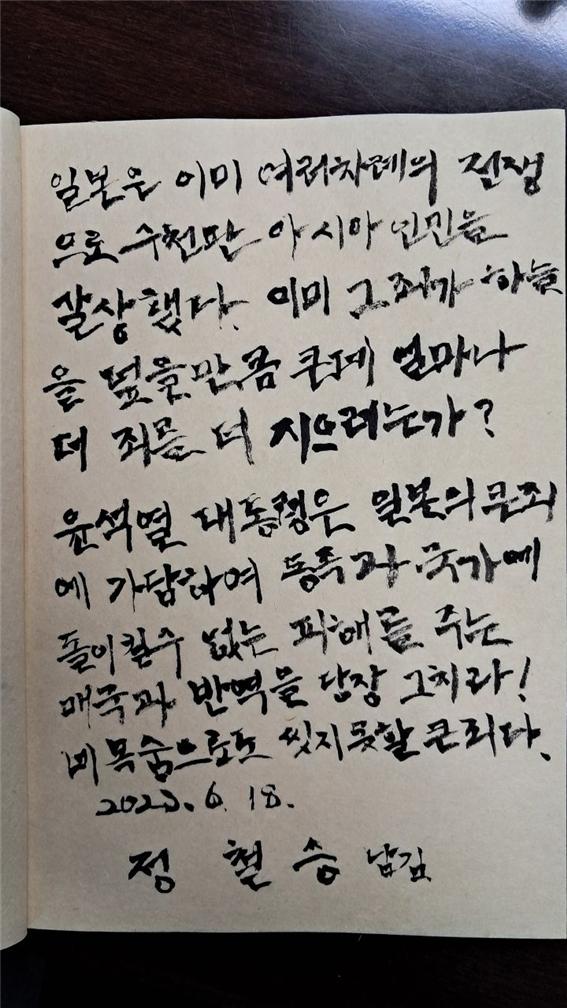 일본은 이미 여러차례의 전쟁
으로 수천만 아시아 인민을
살상했다. 이미 그 죄가 하늘
을 덮을만큼 큰데 얼마나
더 죄를 더 지으려는가?
윤석열 대통령은 일본의 큰 죄
에 가담하여 동족과 국가에
돌이킬수 없는 피해를 주는
매국과 반역을 당장 그치라!
네 목숨으로도 씻지못할 큰 죄다.
2023. 6. 18.
정 철 승 남김